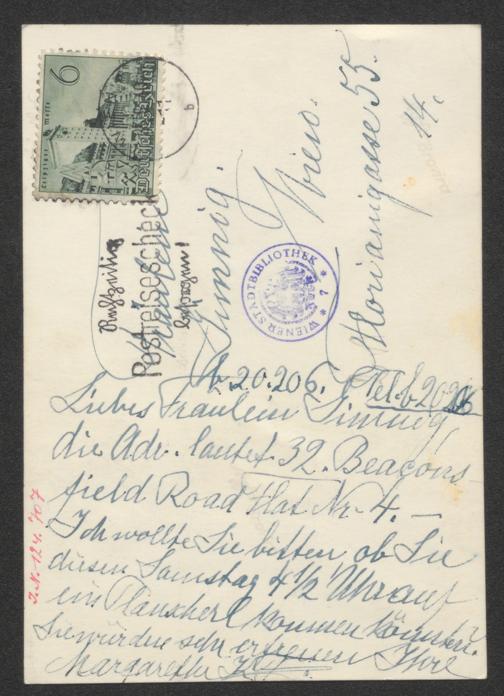 6
Leipziger Messe
Deutsches Reich
b
Rechtzeitig
Postreisescheck
besorgen!
Fräulein
Simnig.
Wien.
Florianigasse 55.
14.
WIENER STADTBIBLIOTHEK
* 7 *
b 20.206. Tel. b 20206
Liebes Fräulein Simnig,
die Adr. lautet 32. Beacons-
field Road Flat Nr 4. —
Ich wollte Sie bitten ob Sie
diesen Samstag 4 1/2 Uhr auf
ein Plauscherl kommen können.
Sie würden sehr erfreuen Ihre
Margarethe
I.N. 124.707